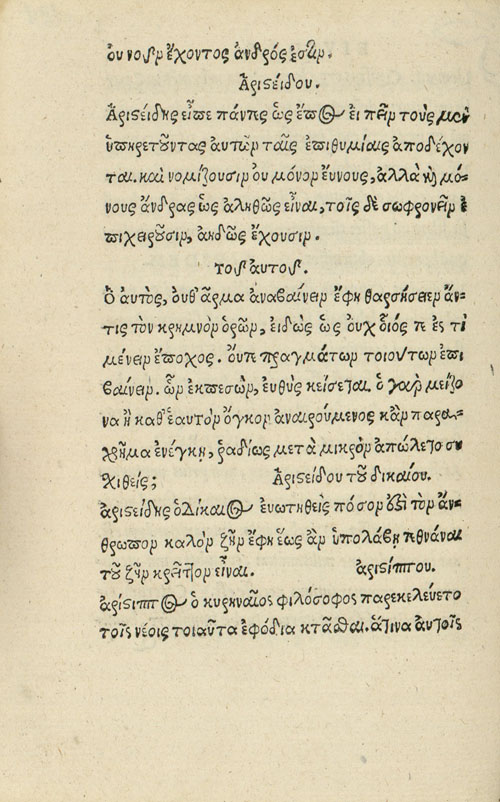 οὐ νοῦν ἔχοντος ἀνδρός ἐστιν.
Ἀριστείδου.
Ἀριστείδης εἶπε πάντες ὡς ἔπος εἰπεῖν τοὺς μὲν
ὑπηρετοῦντας αὐτῶν ταῖς ἐπιθυμίαις ἀποδέχον
ται. καὶ νομίζουσιν οὐ μόνον ἔυνους, ἀλλὰ καὶ μό-
νους ἄνδρας ὡς ἀληθῶς εἶναι, τοῖς δὲ σωφρονεῖν ἐ
πιχειροῦσιν, ἀηδῶς ἔχουσιν.
τοῦ αὐτοῦ.
Ὁ αὐτὸς, οὐθ' ἅρμα ἀναβαίνειν ἔφη θαρσήσειεν ἄν-
τις τὸν κρημνὸν ὁρῶν, εἰδὼς ὡς οὐχ οἷός τε ἐς τί
μένειν ἔποχος. οὔτε πραγμάτων τοιούτων ἐπι
βαίνειν. ὧν ἐκπεσὼν, ἐυθὺς κείσεται. ὁ γὰρ μείζο
να ἢ καθ' ἑαυτὸν ὄγκον ἀναιρούμενος κἂν παρα-
χρῆμα ἐνέγκη, ῥαδίως μετὰ μικρὸν ἀπώλετο συ
χιθείς; Ἀριστείδου τοῦ δικαίου.
ἀριστείδης ὁ Δίκαιος ἐυωτηθεὶς πόσον ἐστὶ τὸν ἄν-
θρωπον καλὸν ζῆν ἔφη ἕως ἂν ὑπολάβη τεθνάναι
τοῦ ζῆν κρεῖττον εἶναι. ἀριστίππου.
ἀρίστιππος ὁ κυρηναῖος φιλόσοφος παρεκελέυετο
τοῖς νέοις τοιαῦτα ἐφόδια κτᾶσθαι. ἅτινα ἀυτοῖς